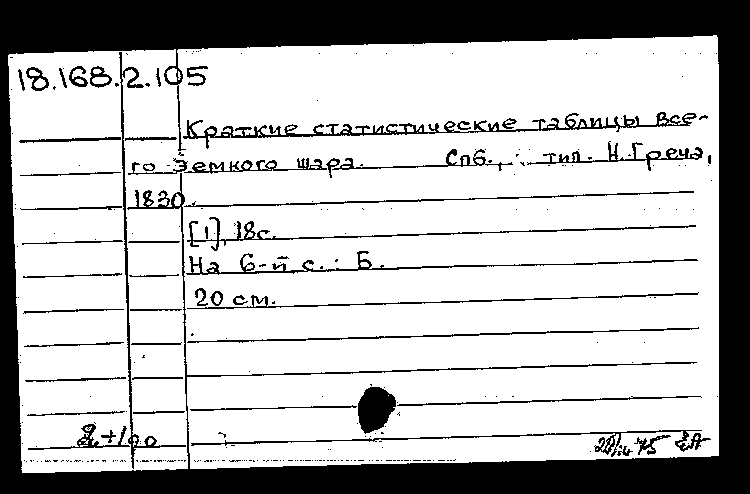 18.168.2.105
Краткие статистические таблицы все-
го Земного шара. Спб., тип. Н. Греча,
1830.
[1], 18с.
На 6-й с.: Б.
20 см.